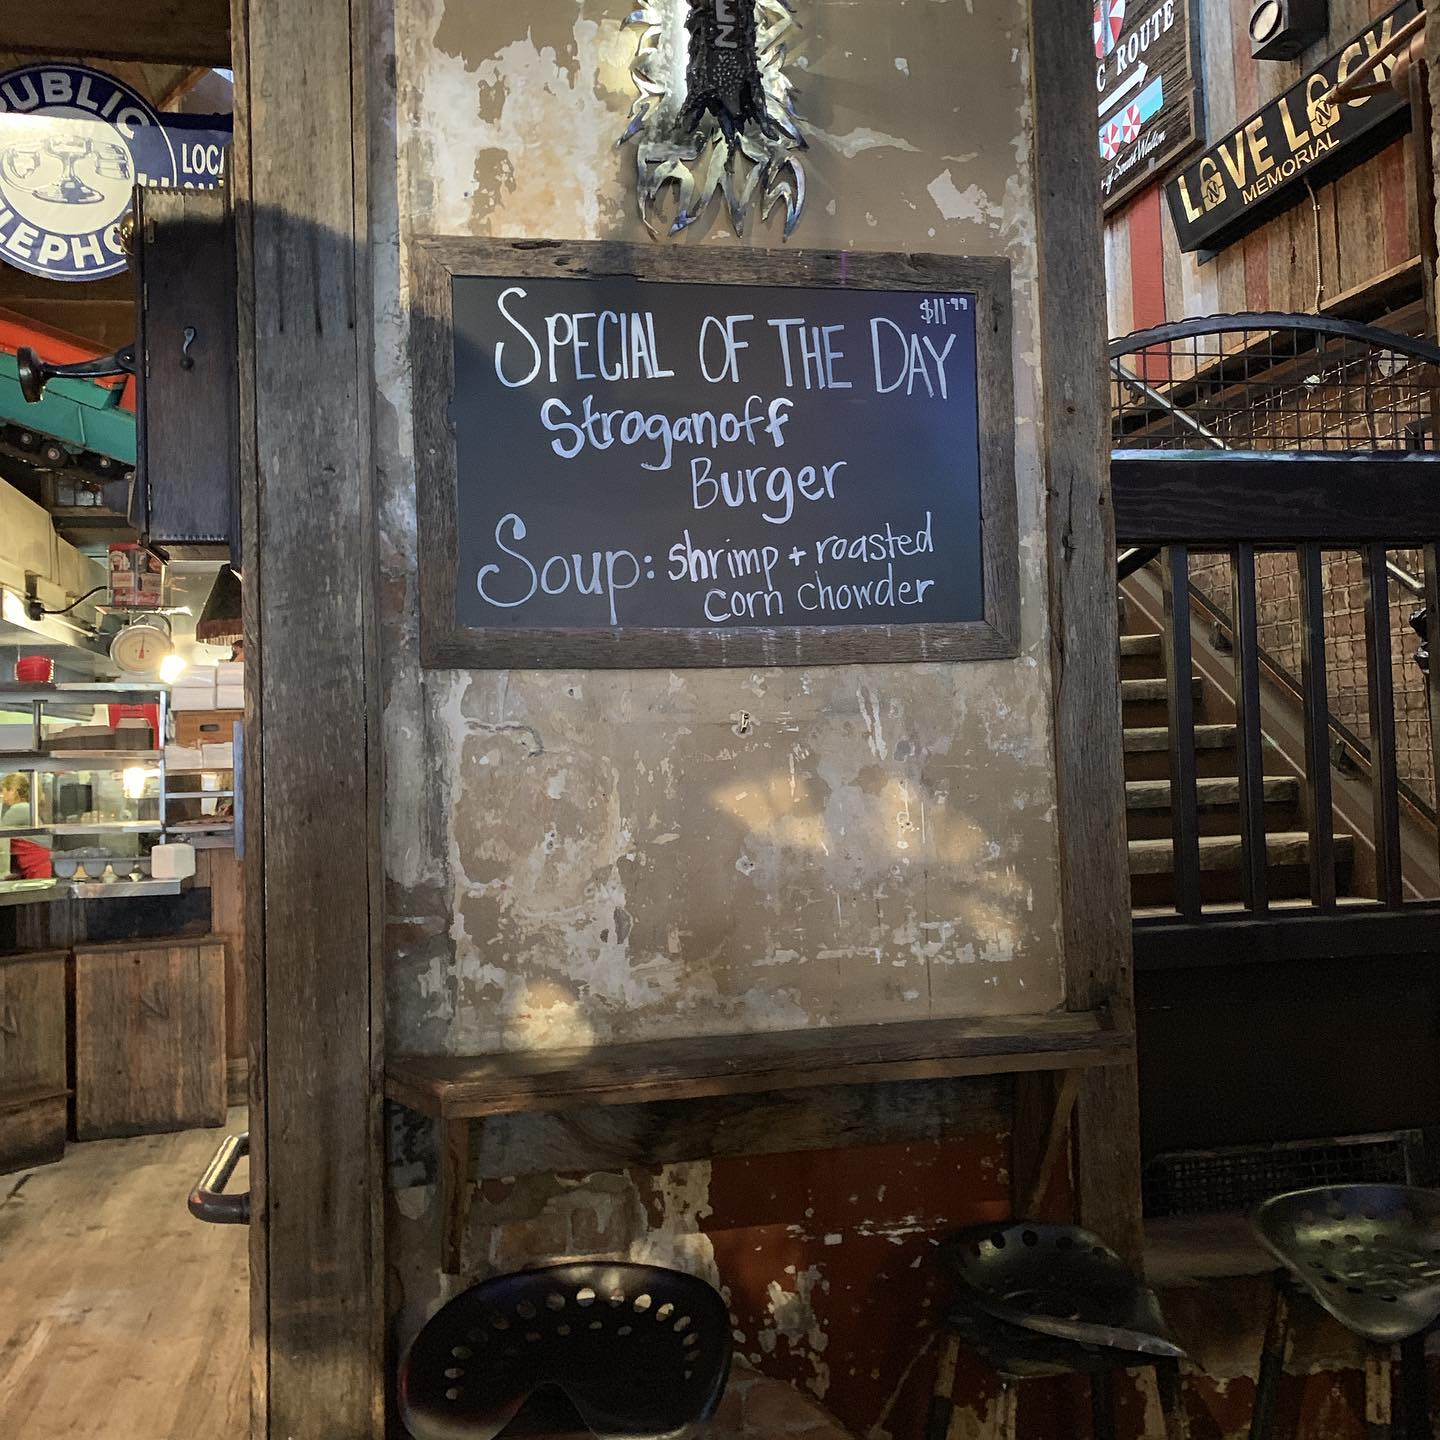 PUBLIC
TELEPHO
LOCA
C ROUTE
by South Walton
LOVE LOCK
MEMORIAL
$11.99
SPECIAL OF THE DAY
Stroganoff
Burger
Soup: shrimp + roasted
corn chowder